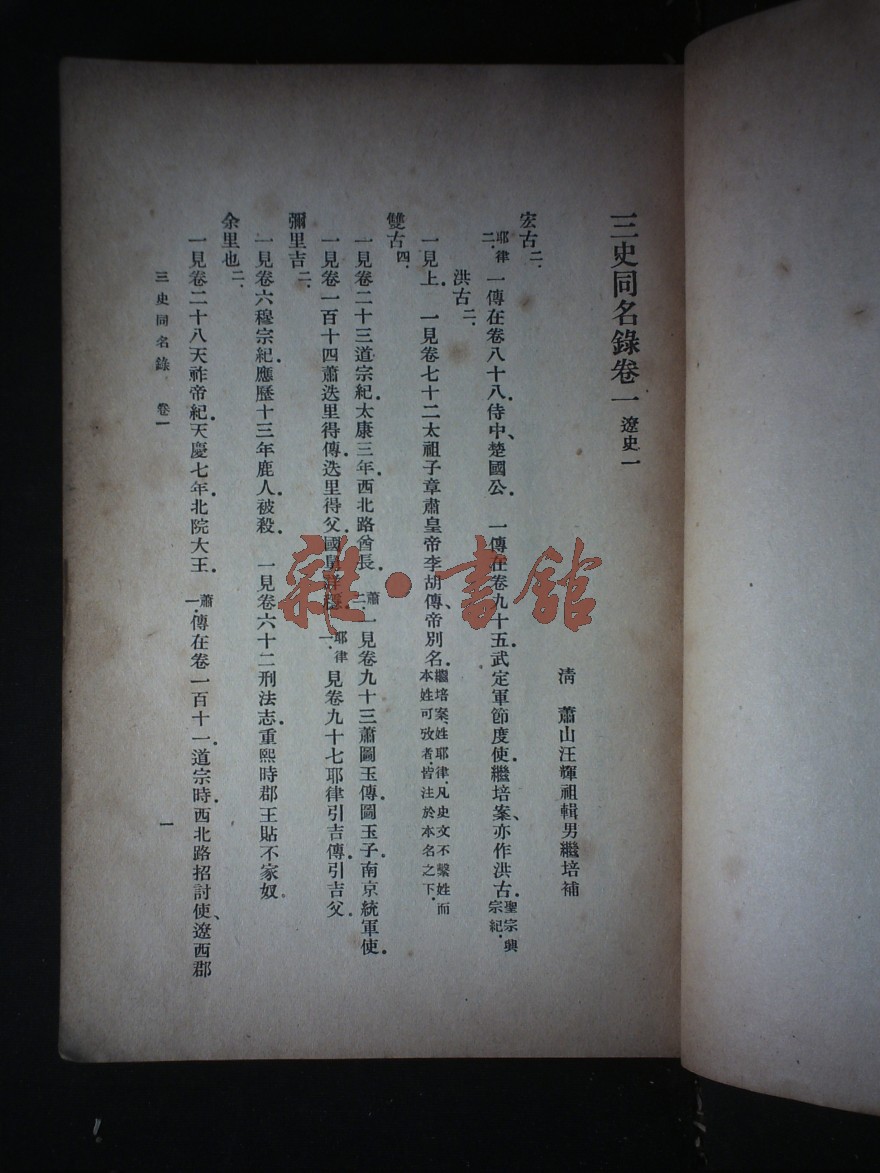 三史同名錄卷一 遼史一
清 蕭山汪輝祖輯男繼培補
宏古二.
耶律二.一傳在卷八十八侍中、楚國公. 一傳在卷九十五武定軍節度使.繼培案、亦作洪古.聖宗興宗紀.
洪古二.
一見上. 一見卷七十二太祖子章肅皇帝李胡傳、帝別名.繼培案、姓耶律.凡史文不繫姓而本姓可攷者.皆注於本名之下.
雙古四.
一見卷二十三道宗紀.太康三年.西北路酋長. 蕭二.一見卷九十三蕭圖玉傳.圖玉子.南京統軍使.
一見卷一百十四蕭迭里得傳.迭里得父.國舅詳穩. 耶律一.見卷九十七耶律引吉傳.引吉父.
彌里吉二.
一見卷六穆宗紀.應歷十三年鹿人被殺. 一見卷六十二刑法志.重熙時郡王貼不家奴
余里也二.
一見卷二十八天祚帝紀.天慶七年.北院大王. 蕭一.傳在卷一百十一.道宗時.西北路招討使、遼西郡
三史同名錄 卷一
一
雜·書館